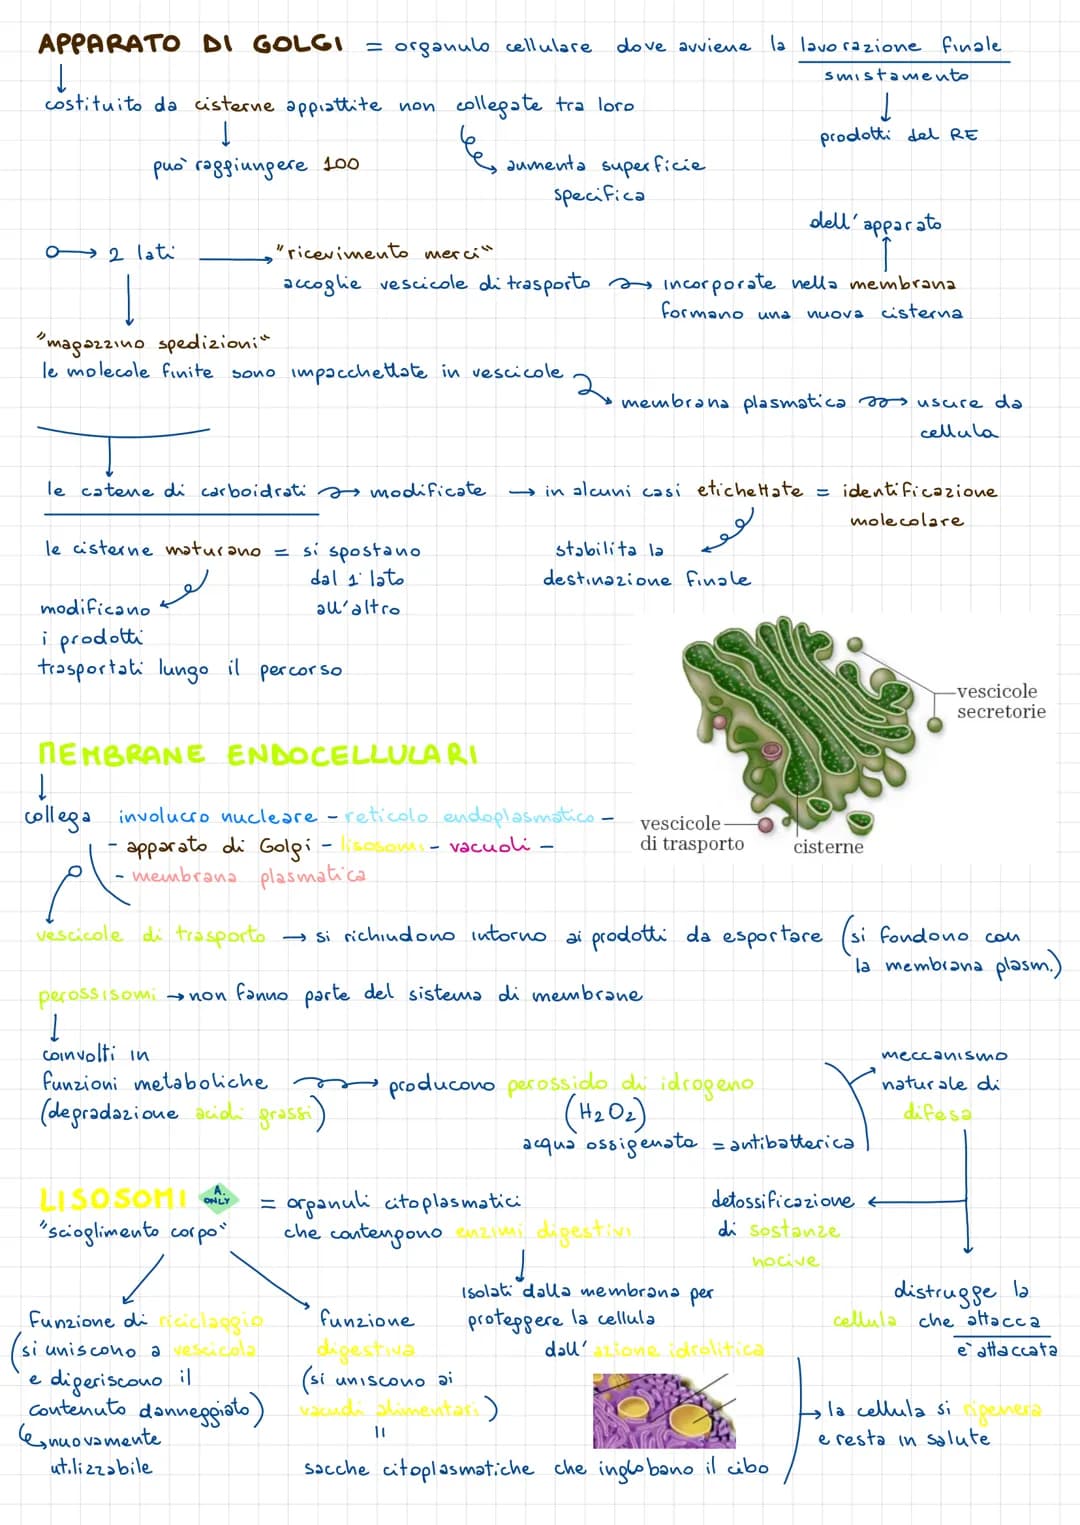 APPARATO DI GOLGI = organulo cellulare dove avviene la lavorazione finale
smistamento
costituito da cisterne appiattite non collegate tra loro
prodotti del RE
può raggiungere 100
aumenta superficie
specifica
dell'apparato
2 lati
"ricevimento merci"
accoglie vescicole di trasporto → incorporate nella membrana
formano una nuova cisterna
"magazzino spedizioni"
le molecole finite sono impacchettate in vescicole
membrana plasmatica → uscire da
cellula
le catene di carboidrati → modificate → in alcuni casi etichettate = identificazione
molecolare
le cisterne maturano = si spostano
dal 1° lato
all'altro
stabilita la
destinazione finale
modificano
i prodotti
trasportati lungo il percorso
vescicole
secretorie
vescicole
di trasporto
cisterne
MEMBRANE ENDOCELLULARI
collega involucro nucleare - reticolo endoplasmatico -
- apparato di Golgi - lisosomi - vacuoli -
- membrana plasmatica
vescicole di trasporto → si richiudono intorno ai prodotti da esportare (si fondono con
la membrana plasm.)
perossisomi → non fanno parte del sistema di membrane
coinvolti in
funzioni metaboliche
(degradazione acidi grassi)
producono perossido di idrogeno
(H2O2)
acqua ossigenata = antibatterica
meccanismo
naturale di
difesa
LISOSOMI A. ONLY = organuli citoplasmatici
"scioglimento corpo"
che contengono enzimi digestivi
detossificazione
di sostanze
nocive
isolati dalla membrana per
proteggere la cellula
dall'azione idrolitica
distrugge la
cellula che attacca
è attaccata
Funzione di riciclaggio
(si uniscono a vescicola
e digeriscono il
contenuto danneggiato)
nuovamente
utilizzabile
funzione
digestiva
(si uniscono ai
vacuoli alimentari)
=
sacche citoplasmatiche che inglobano il cibo
la cellula si rigenera
e resta in salute